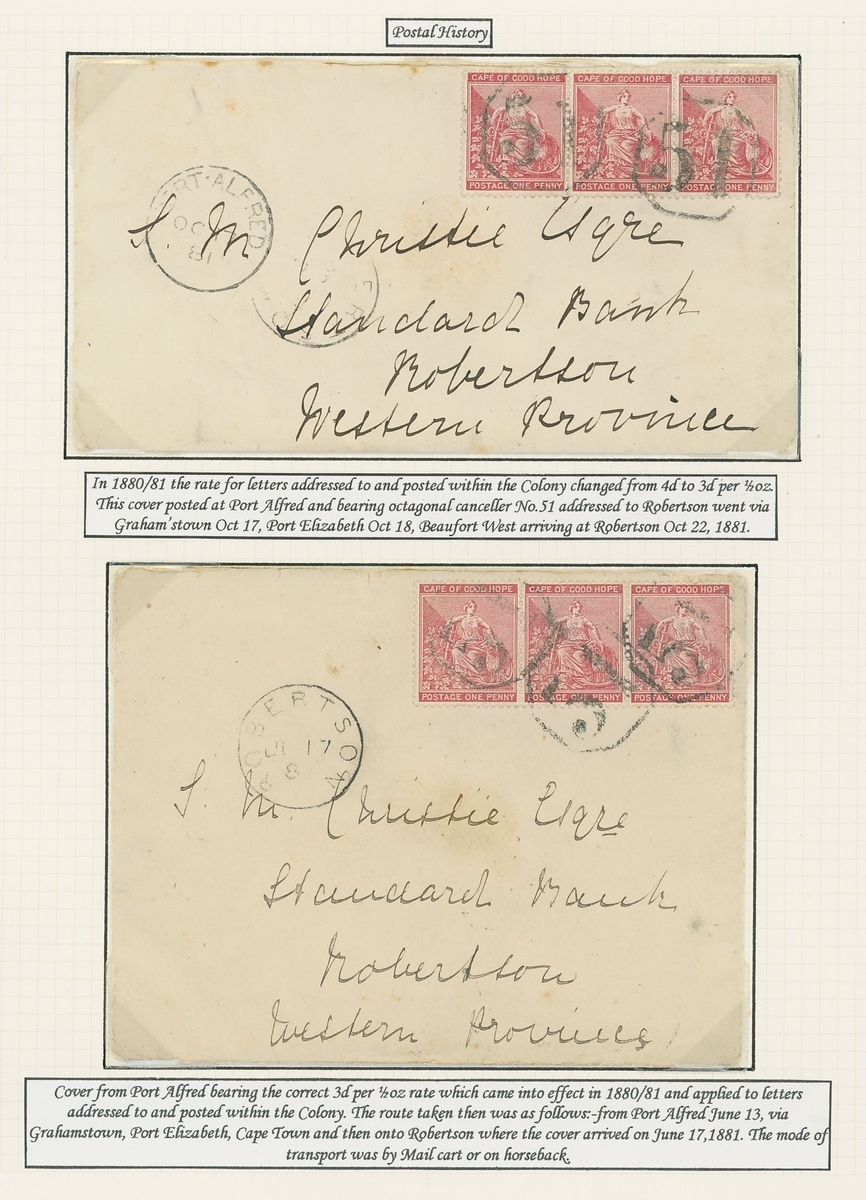 Postal History
CAPE OF GOOD HOPE CAPE OF GOOD HOPE CAPE OF GOOD HOPE
51 51
POSTAGE ONE PENNY POSTAGE ONE PENNY POSTAGE ONE PENNY
PORT·ALFRED
OC
81
S. M Christie Esqre
Standard Bank
Robertson
Western Province
In 1880/81 the rate for letters addressed to and posted within the Colony changed from 4d to 3d per ½oz.
This cover posted at Port Alfred and bearing octagonal canceller No.51 addressed to Robertson went via
Graham'stown Oct 17, Port Elizabeth Oct 18, Beaufort West arriving at Robertson Oct 22, 1881.
CAPE OF GOOD HOPE CAPE OF GOOD HOPE CAPE OF GOOD HOPE
POSTAGE ONE PENNY POSTAGE ONE PENNY POSTAGE ONE PENNY
ROBERTSON
JU 17
8
S. M. Christie Esqre
Standard Bank
Robertson
Western Province
Cover from Port Alfred bearing the correct 3d per ½oz rate which came into effect in 1880/81 and applied to letters
addressed to and posted within the Colony. The route taken then was as follows:-from Port Alfred June 13, via
Grahamstown, Port Elizabeth, Cape Town and then onto Robertson where the cover arrived on June 17,1881. The mode of
transport was by Mail cart or on horseback.